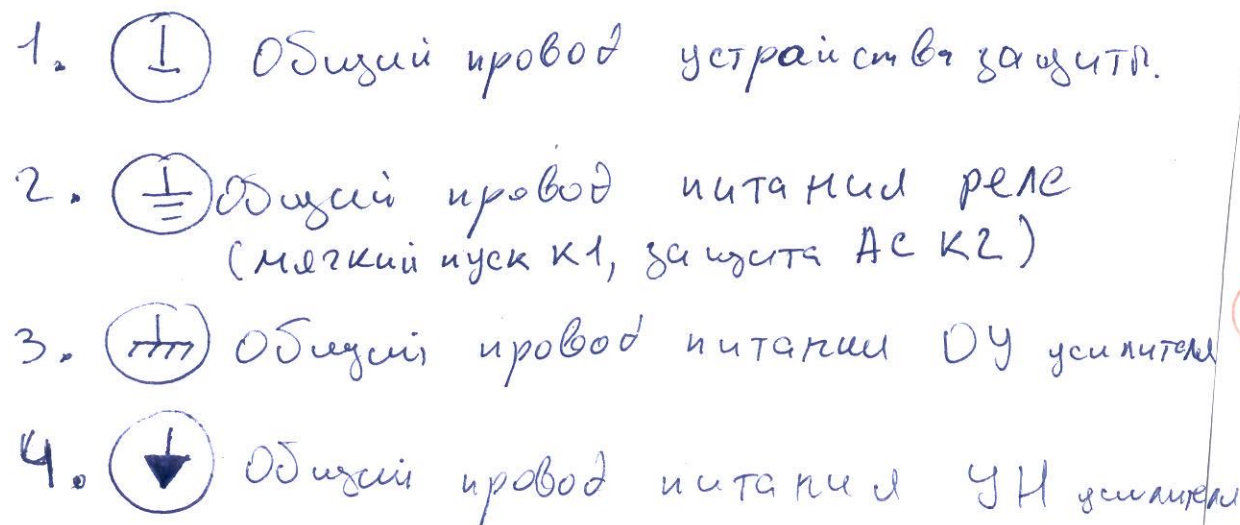 1. Общий провод устройства защиты.
2. Общий провод питания реле
(мягкий пуск К1, защита АС К2)
3. Общий провод питания ОУ усилителя
4. Общий провод питания УН усилителя